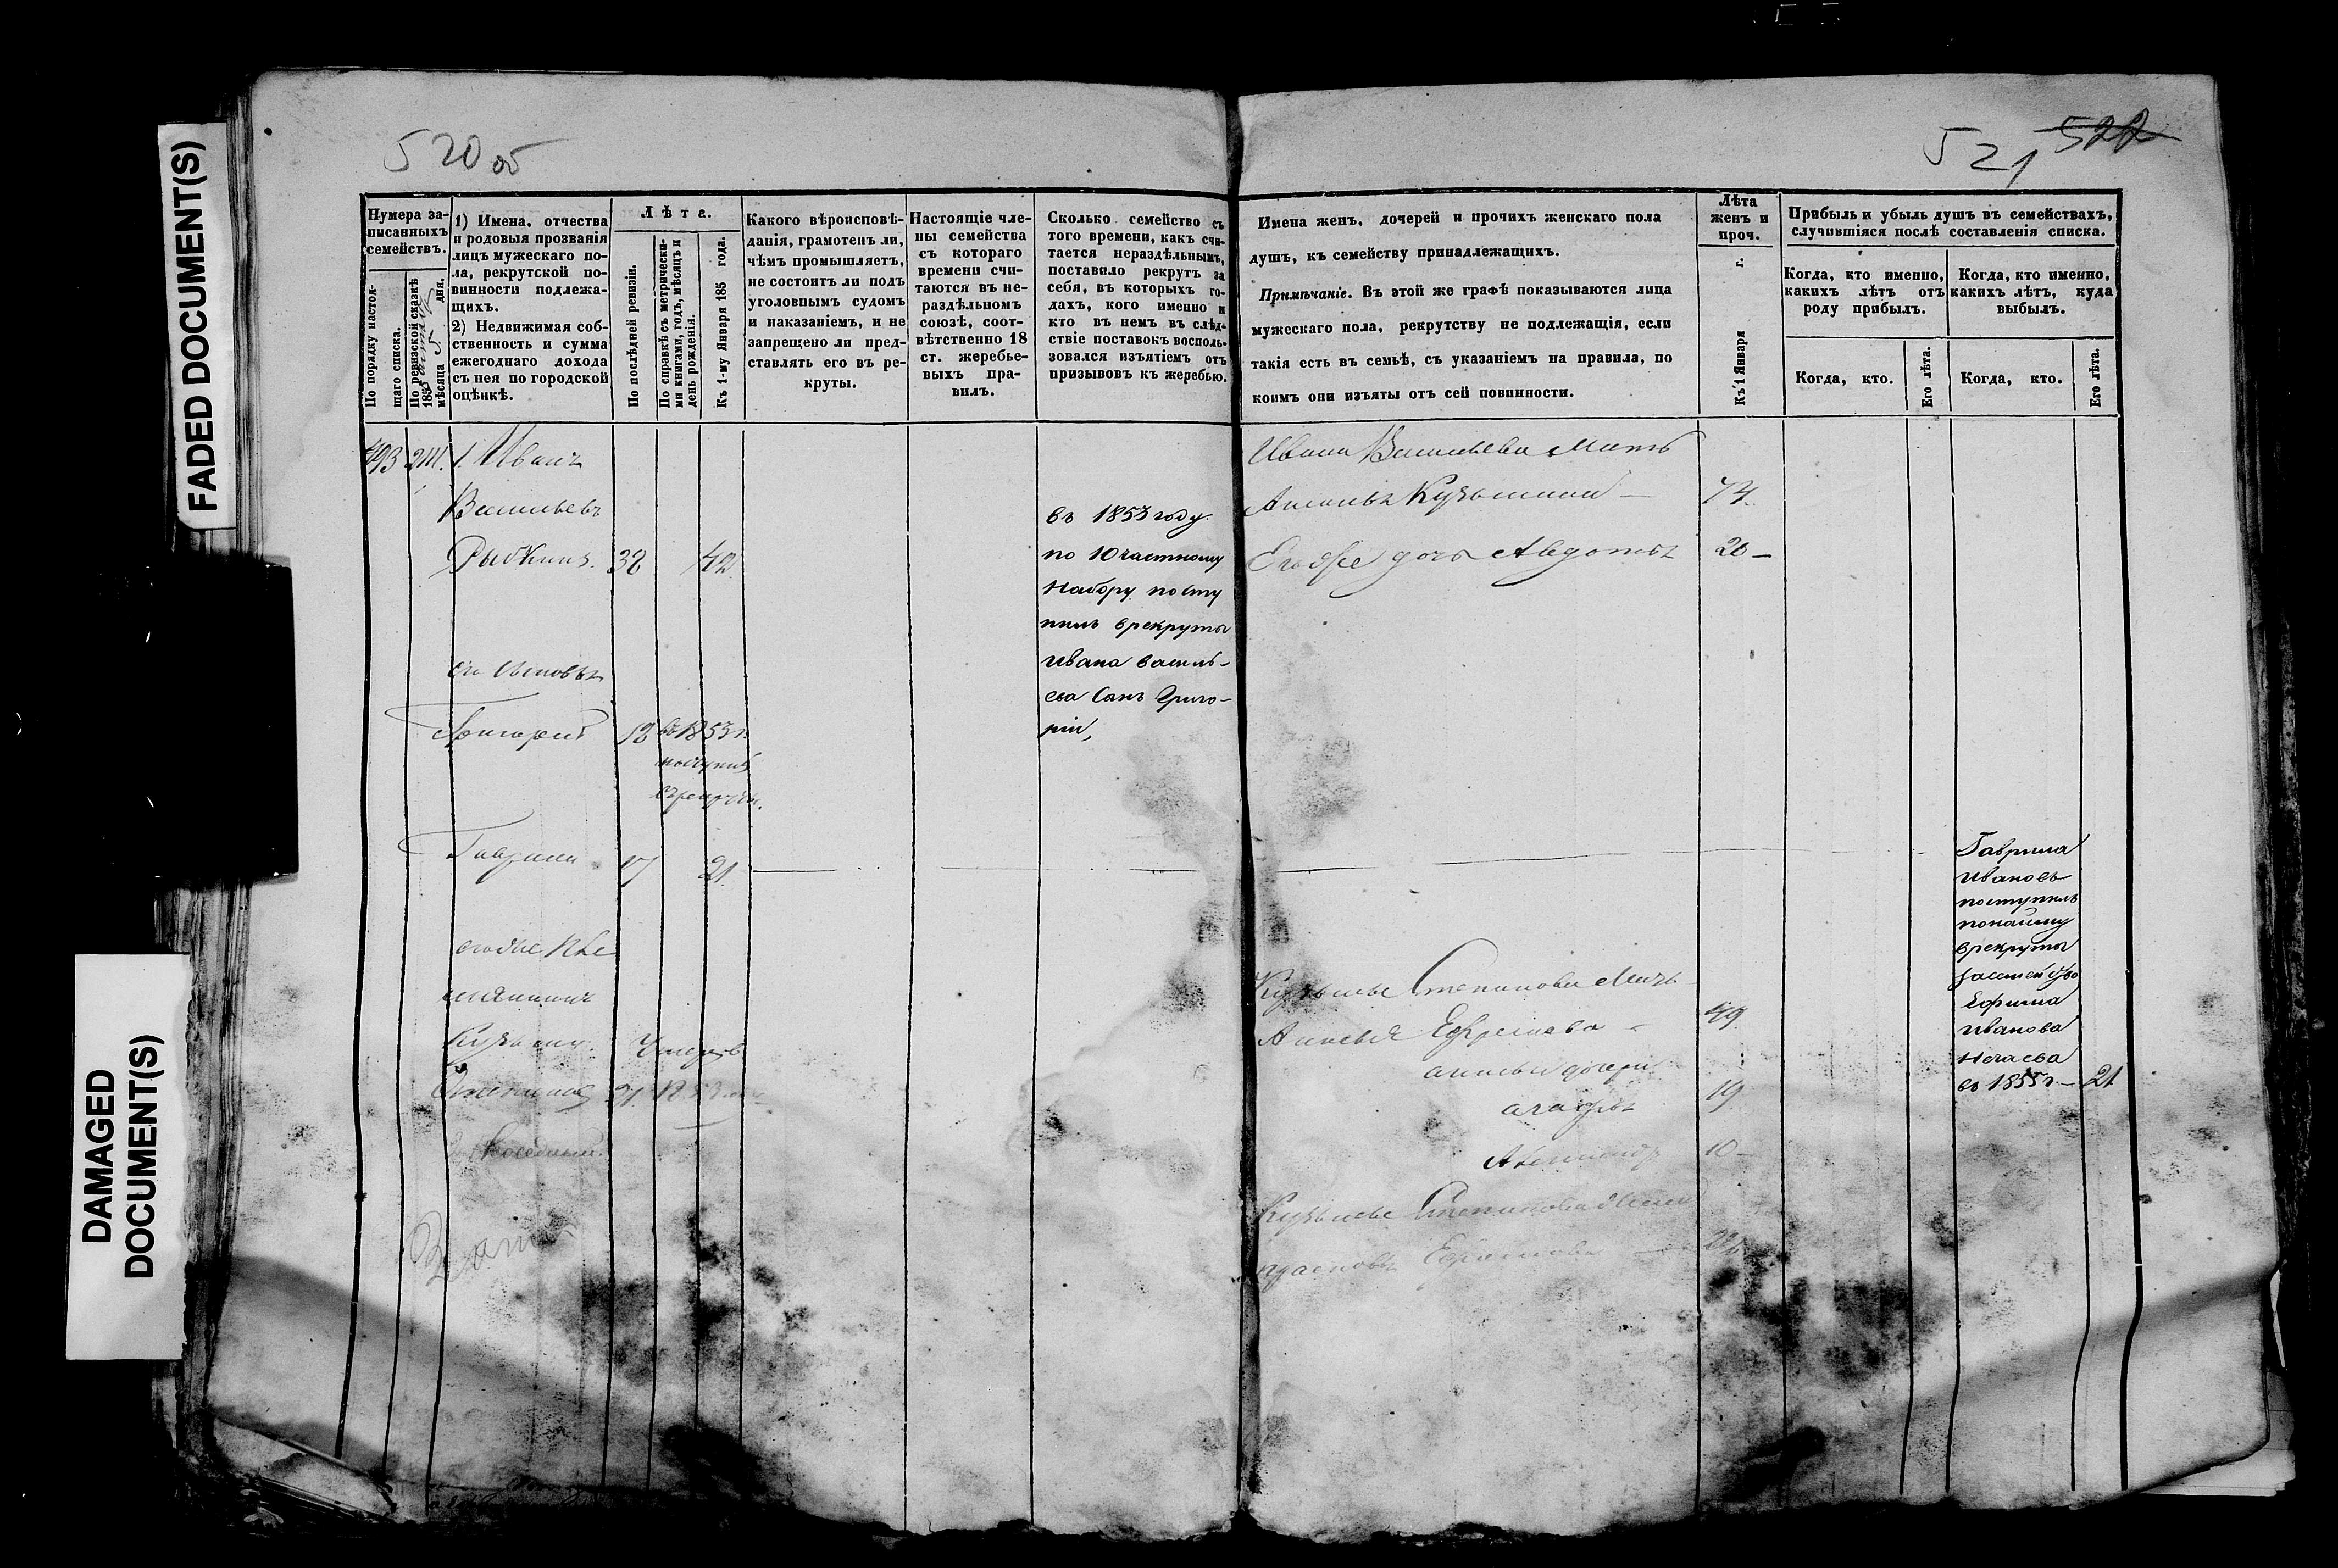 FADED DOCUMENT(S)
DAMAGED
DOCUMENT(S)
520 об
521 522
Нумера за-
писанныхъ
семействъ.
По порядку настоя-
щаго списка.
По ревизской сказкѣ
185
мѣсяца 5 дня.
1) Имена, отчества
и родовыя прозванія
лицъ мужескаго по-
ла, рекрутской по-
винности подлежа-
щихъ.
2) Недвижимая соб-
ственность и сумма
ежегоднаго дохода
съ нея по городской
оцѣнкѣ.
Лѣта.
По послѣдней ревизіи.
По справкѣ съ метрически-
ми книгами, годъ, мѣсяцъ и
день рожденія.
Къ 1-му Января 185 года.
Какого вѣроисповѣ-
данія, грамотенъ ли,
чѣмъ промышляетъ,
не состоитъ ли подъ
уголовнымъ судомъ
и наказаніемъ, и не
запрещено ли пред-
ставлять его въ ре-
круты.
Настоящіе чле-
ны семейства
съ котораго
времени счи-
таются въ не-
раздѣльномъ
союзѣ, соот-
вѣтственно 18
ст. жеребье-
выхъ пра-
вилъ.
Сколько семейство съ
того времени, какъ счи-
тается нераздѣльнымъ,
поставило рекрутъ за
себя, въ которыхъ го-
дахъ, кого именно и
кто въ немъ въ слѣд-
ствіе поставокъ восполь-
зовался изъятіемъ отъ
призывовъ къ жеребью.
Имена женъ, дочерей и прочихъ женскаго пола
душъ, къ семейству принадлежащихъ.
Примѣчаніе. Въ этой же графѣ показываются лица
мужескаго пола, рекрутству не подлежащія, если
такія есть въ семьѣ, съ указаніемъ на правила, по
коимъ они изъяты отъ сей повинности.
Лѣта
женъ и
проч.
Къ 1 Января
Прибыль и убыль душъ въ семействахъ,
случившіяся послѣ составленія списка.
Когда, кто именно,
какихъ лѣтъ отъ
роду прибылъ.
Когда, кто именно,
какихъ лѣтъ, куда
выбылъ.
Когда, кто.
Его лѣта.
Когда, кто.
Его лѣта.
493 2111. 1. Иванъ
Васильевъ
Рыбкинъ. 38 42.
его сыновья
Григорій 18 въ 1853 г.
поступилъ
в рекруты.
Гаврила 17 21.
егоже
Кузьма умеръ въ
Степановъ 21. 1853
въ 1853 году.
по 10 частному
набору посту
пилъ врекруты
Ивана василь-
ева Сынъ Григо-
рій,
Ивана Васильева мать
Кузьмина 74.
Егоже дочь Авдотья 20
Кузьмы Степанова мать
Ефремова 49.
дочери
19
10
Кузьмы Степанова жена
Ефремова 22
Гаврила
ивановъ
поступилъ
понайму
врекруты
Ефима
иванова
Нечаева
въ 1855 г. 21